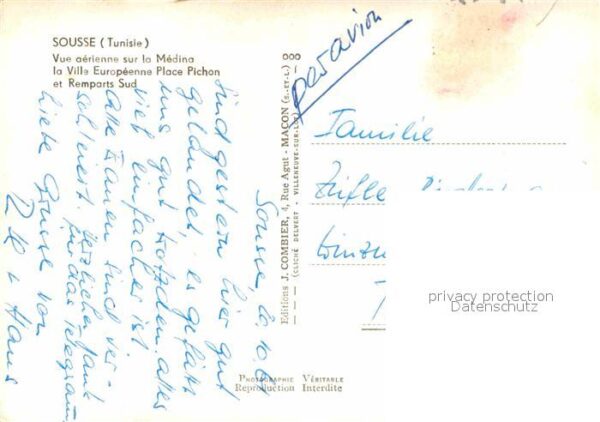 SOUSSE (Tunisie)
Vue aérienne sur la Médina
la Ville Européenne Place Pichon
et Remparts Sud
par avion
Sousse, 10.6
Sind gestern hier gut
gelandet, es gefällt
uns gut trotzdem alles
viel einfacher ist
alle Frauen sind ver-
schleiert. Herzlichen Dank
für das Telegram
Liebe Grüsse von
Hans
Familie
Editions J. COMBIER, 4, Rue Agut - MACON (S.-ET-L.)
(CLICHÉ DELVERT - VILLENEUVE-SUR-LOT)
000
PHOTOGRAPHIE VÉRITABLE
Reproduction Interdite
privacy protection
Datenschutz